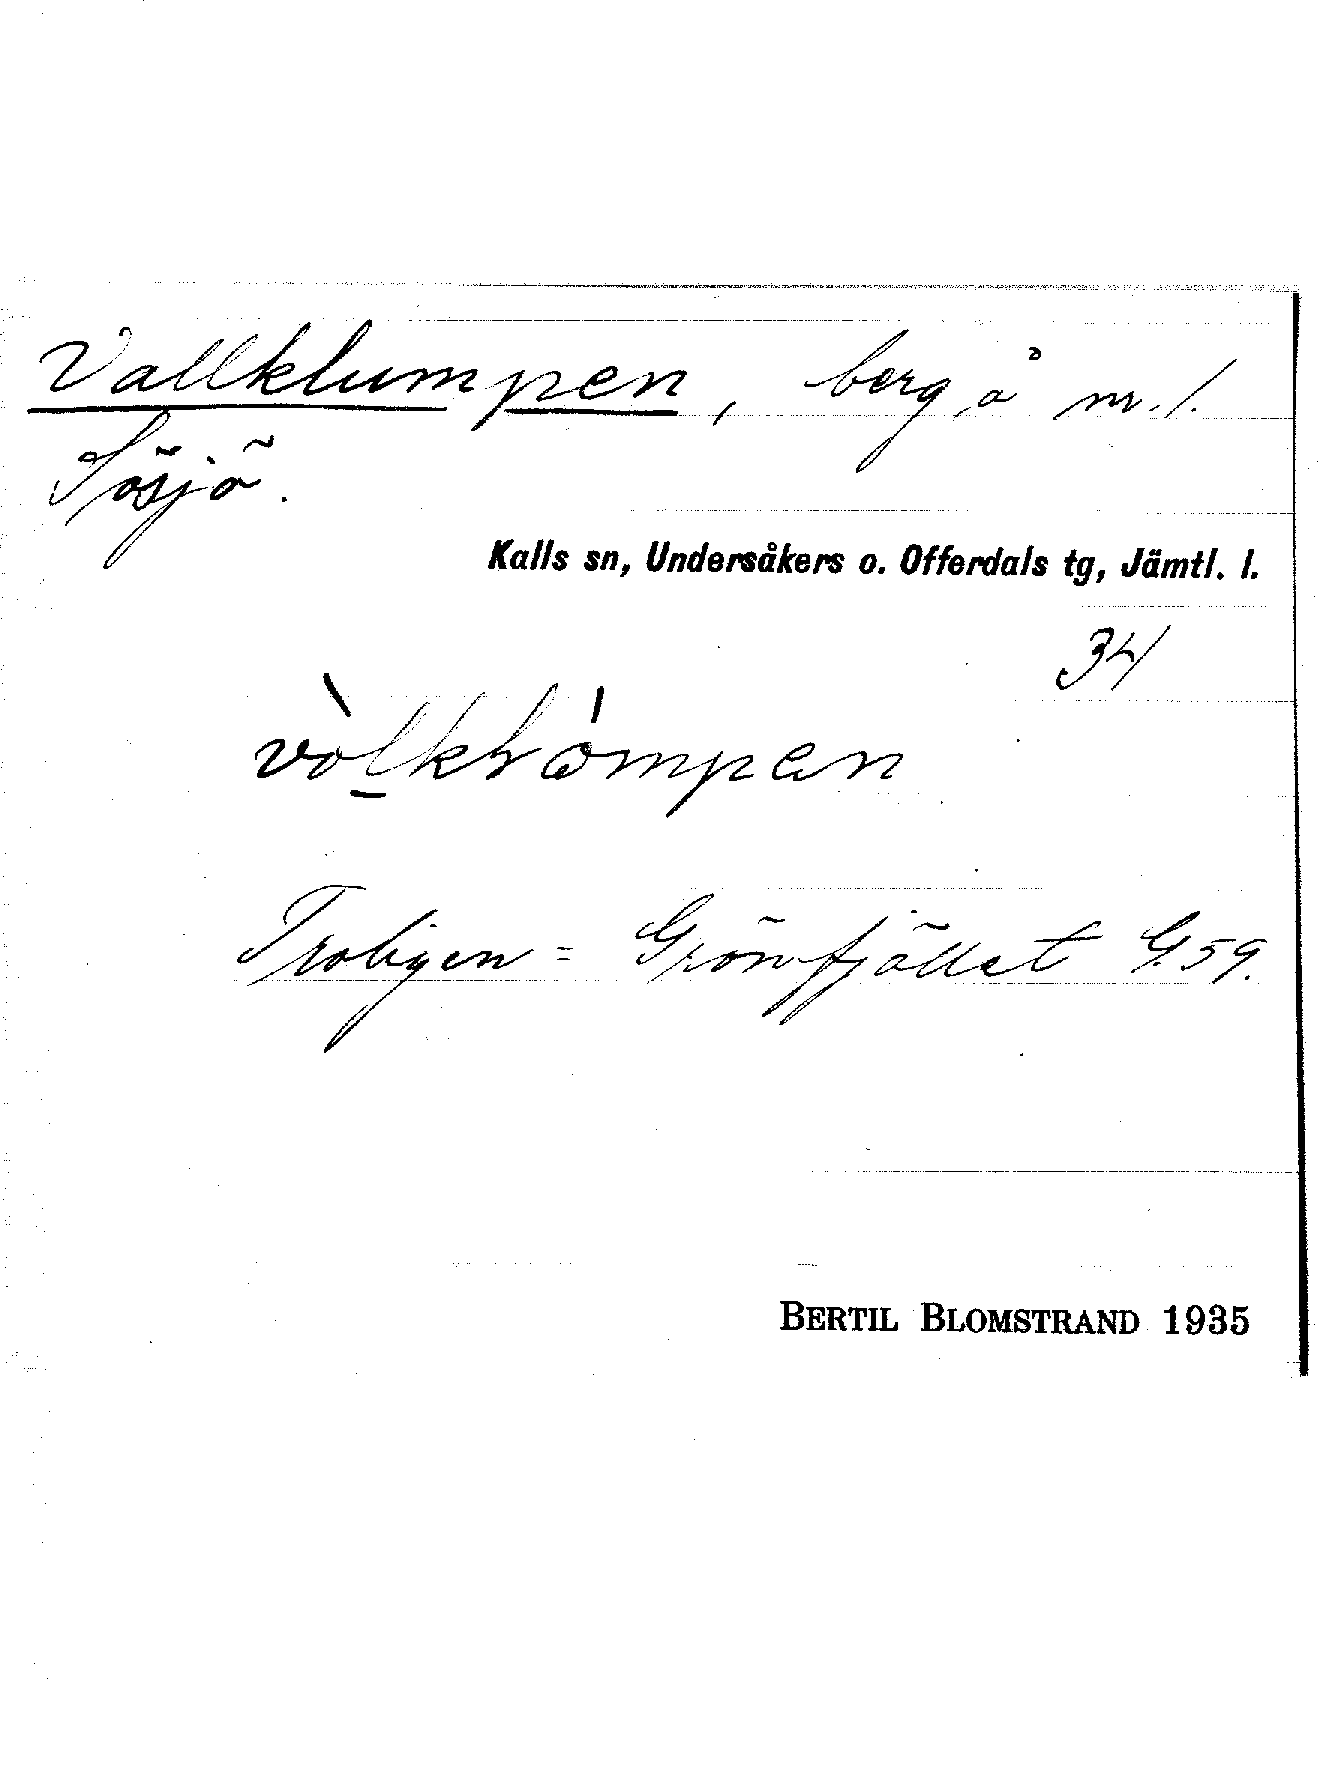 Vallklumpen, berg å nr. 1.
Sösjö.
Kalls sn, Undersåkers o. Offerdals tg, Jämtl. l.
34
Troligen = Grönfjället G.59.
BERTIL BLOMSTRAND 1935